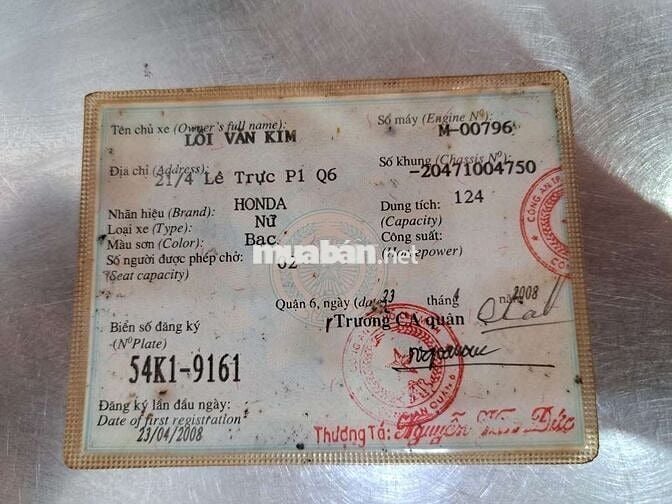 Tên chủ xe (Owner's full name):
LÔI VĂN KIM
Số máy (Engine Nº):
M-00796
Địa chỉ (Address):
21/4 Lê Trực P1 Q6
Số khung (Chassis Nº):
-20471004750
Nhãn hiệu (Brand): HONDA
Dung tích: 124
(Capacity)
Loại xe (Type): Nữ
Màu sơn (Color): Bạc
Công suất:
(Horsepower)
Số người được phép chở: 02
(Seat capacity)
muaban.net
Quận 6, ngày (date) 23 tháng 4 năm 2008
Trưởng CA quận
Biển số đăng ký
(Nº Plate)
54K1-9161
Đăng ký lần đầu ngày:
Date of first registration
23/04/2008
Thượng Tá: Nguyễn Đức
CÔNG AN